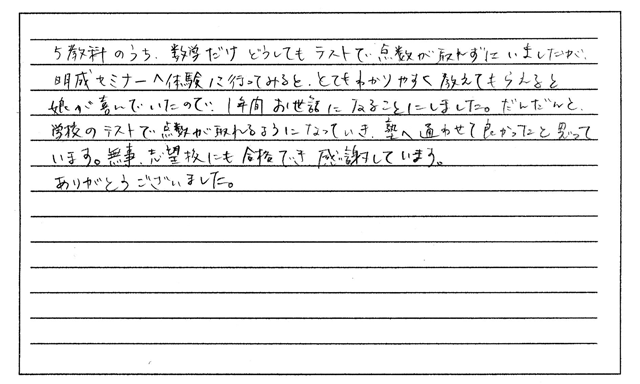 5教科のうち、数学だけどうしてもテストで点数が取れずにいましたが、
明成セミナーへ体験に行ってみると、とてもわかりやすく教えてもらえると
娘が喜んでいたので、1年間お世話になることにしました。だんだんと、
学校のテストで点数が取れるようになっていき、塾へ通わせて良かったと思って
います。無事、志望校にも合格でき感謝しています。
ありがとうございました。